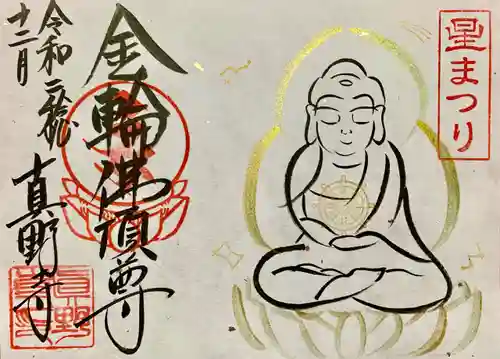 星まつり
金輪佛頂尊
令和二
十二月
真野寺